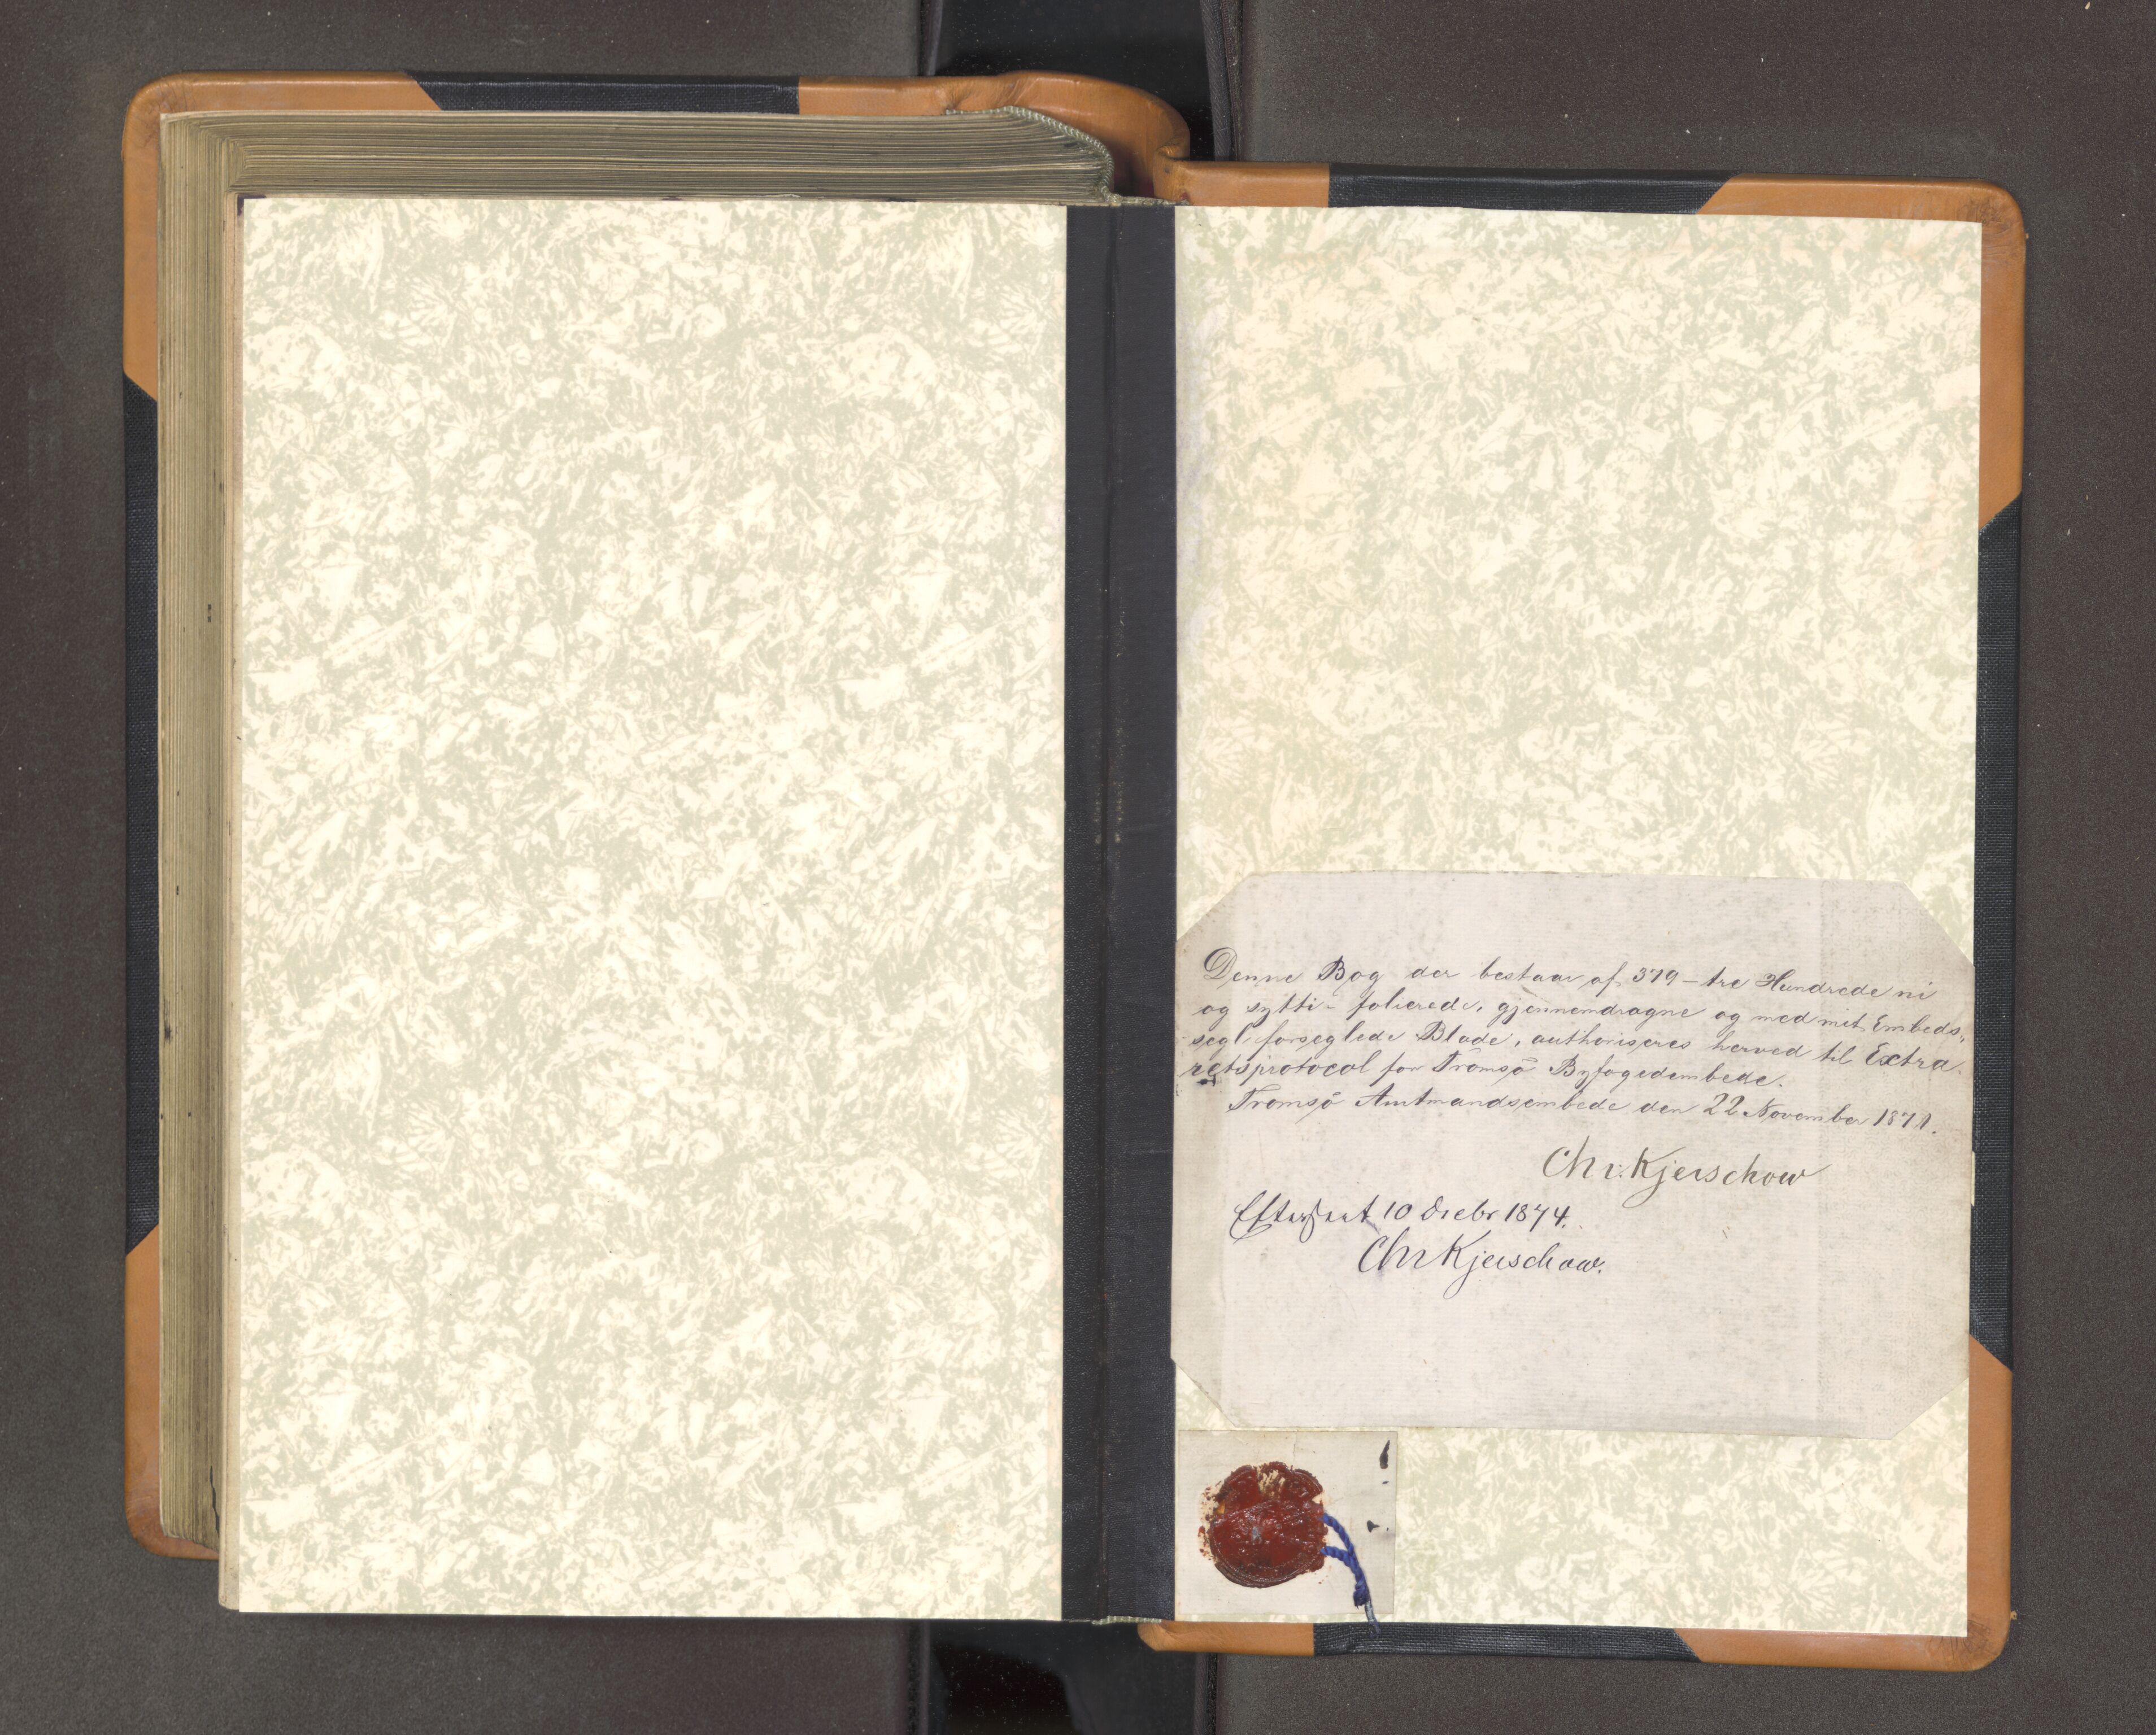 Denne Bog der bestaar af 379 – tre Hundrede ni
og sytti – folierede, gjennemdragne og med mit Embeds„
segl forseglede Blade, authoriseres herved til Extra„
retsprotocol for Tromsø Byfogedembede.
Tromsø Amtmandsembede den 22 November 1871.
Chr. Kjerschow
Efterseet 10 Decbr 1874.
Chr Kjerschow.